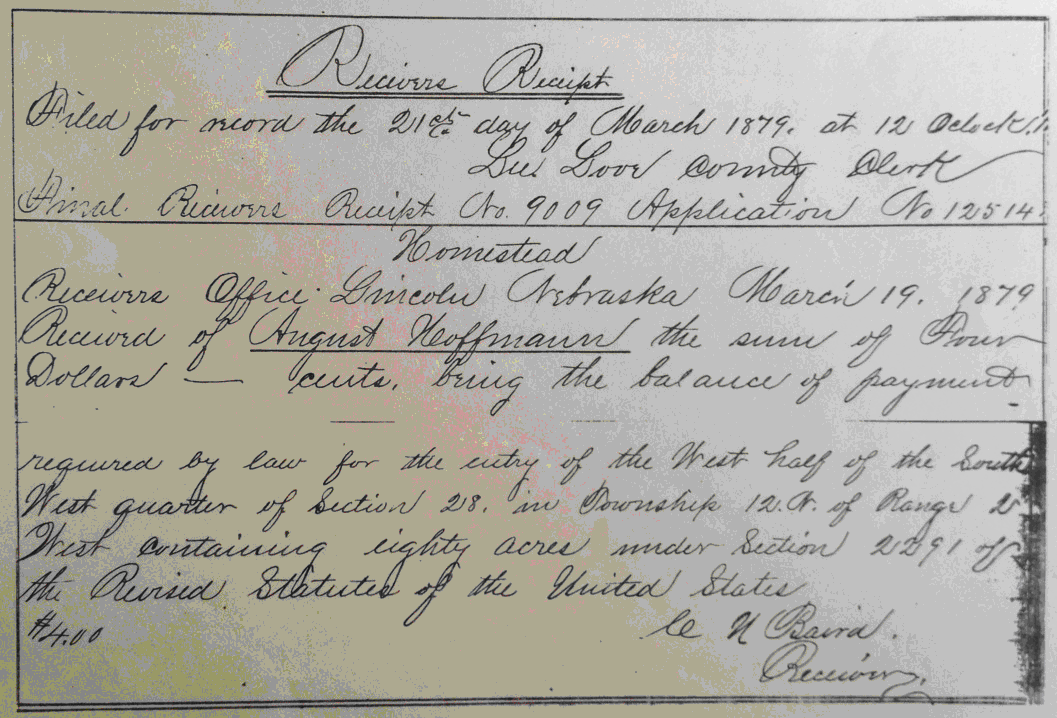 Receivers Receipt
Filed for record the 21st day of March 1879. at 12 Oclock M
Love County Clerk
Final Receivers Receipt No. 9009 Application No 12514
Homestead
Receivers Office Lincoln Nebraska March 19. 1879
Received of August Hoffmann the sum of Four
Dollars — cents, being the balance of payment
required by law for the entry of the West half of the South
West quarter of Section 28. in Township 12. N. of Range 2
West containing eighty acres under Section 2291 of
the Revised Statutes of the United States
$4.00
C N Baird.
Receiver.